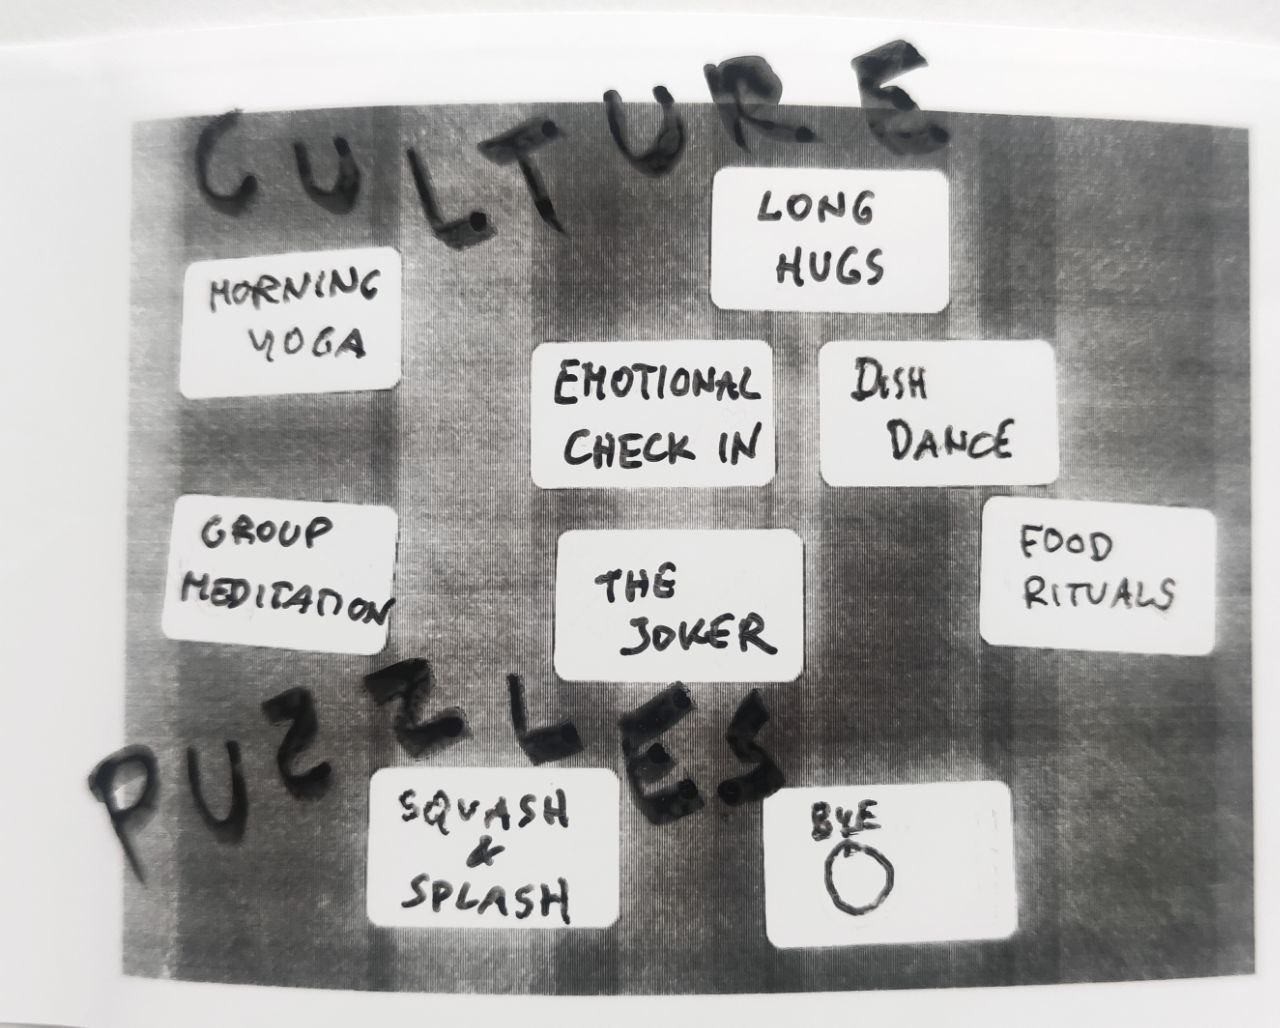 CULTURE
LONG
HUGS
MORNING
YOGA
EMOTIONAL
CHECK IN
DISH
DANCE
GROUP
MEDITATION
THE
JOKER
FOOD
RITUALS
PUZZLES
SQUASH
&
SPLASH
BYE